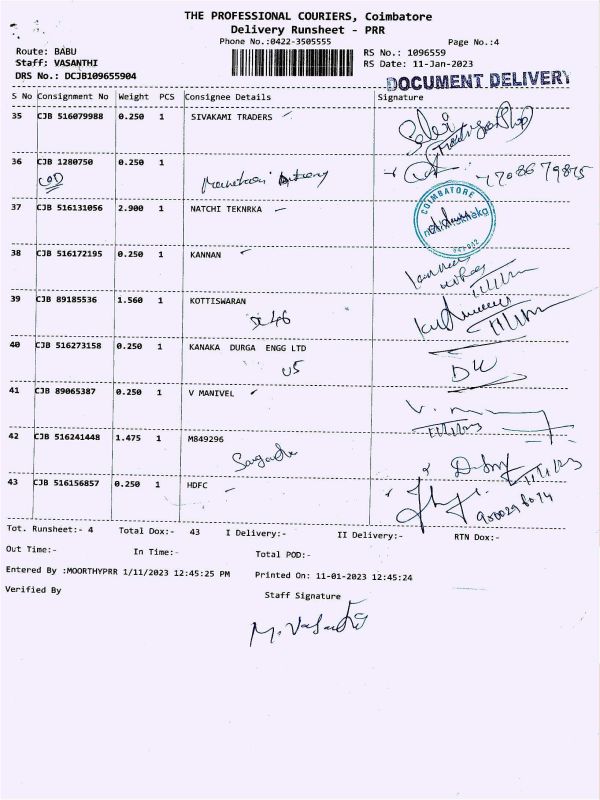 THE PROFESSIONAL COURIERS, Coimbatore
Delivery Runsheet - PRR
Phone No.:0422-3505555
Page No.:4
Route: BABU
RS No.: 1096559
Staff: VASANTHI
RS Date: 11-Jan-2023
DRS No.: DCJB109655904
DOCUMENT DELIVERY
S No Consignment No Weight PCS Consignee Details Signature
35 CJB 516079988 0.250 1 SIVAKAMI TRADERS
36 CJB 1280750 0.250 1
COD
37 CJB 516131056 2.900 1 NATCHI TEKNRKA
COIMBATORE
38 CJB 516172195 0.250 1 KANNAN
39 CJB 89185536 1.560 1 KOTTISWARAN
40 CJB 516273158 0.250 1 KANAKA DURGA ENGG LTD
U5
41 CJB 89065387 0.250 1 V MANIVEL
42 CJB 516241448 1.475 1 M849296
43 CJB 516156857 0.250 1 HDFC
Tot. Runsheet:- 4 Total Dox:- 43 I Delivery:- II Delivery:- RTN Dox:-
Out Time:- In Time:- Total POD:-
Entered By :MOORTHYPRR 1/11/2023 12:45:25 PM Printed On: 11-01-2023 12:45:24
Verified By Staff Signature